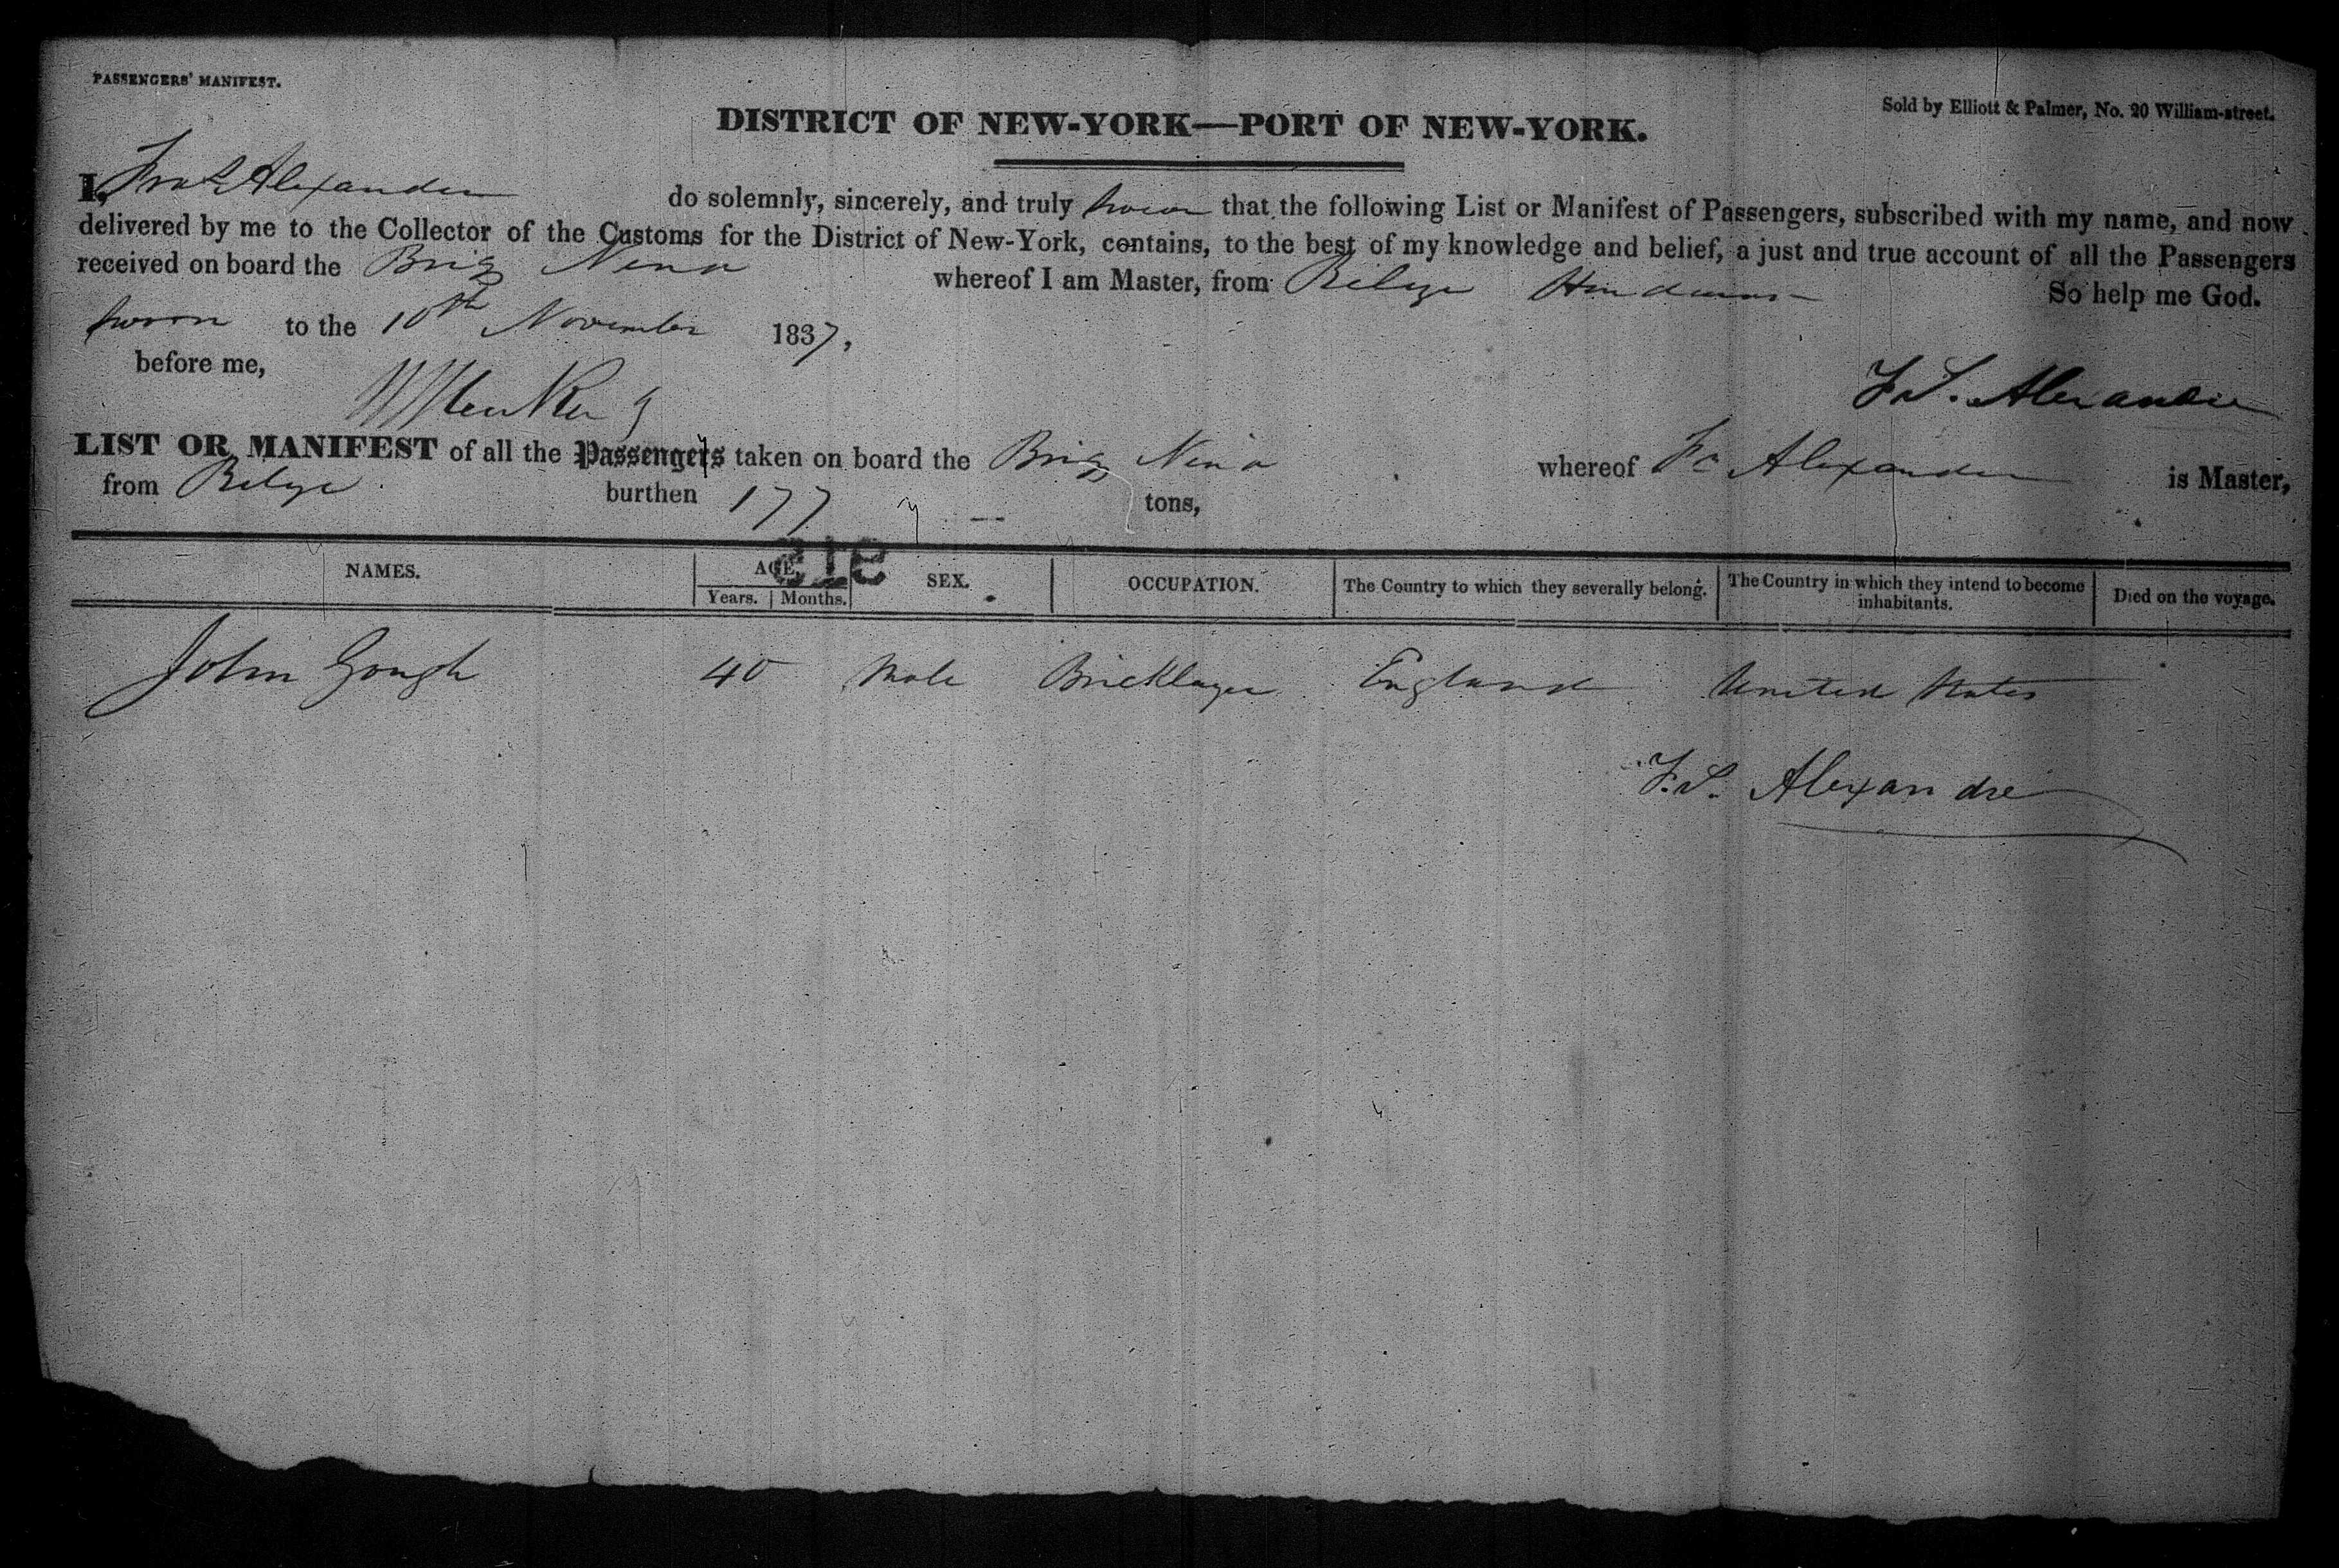 PASSENGERS' MANIFEST.
Sold by Elliott & Palmer, No. 20 William-street.
DISTRICT OF NEW-YORK—PORT OF NEW-YORK.
I, Alexander do solemnly, sincerely, and truly swear that the following List or Manifest of Passengers, subscribed with my name, and now
delivered by me to the Collector of the Customs for the District of New-York, contains, to the best of my knowledge and belief, a just and true account of all the Passengers
received on board the Brig Nina whereof I am Master, from Belize Honduras So help me God.
Sworn to the 10th November 1837,
before me,
F. S. Alexandre
LIST OR MANIFEST of all the Passengers taken on board the Brig Nina whereof Alexander is Master,
from Belize burthen 177 tons,
NAMES. AGE. SEX. OCCUPATION. The Country to which they severally belong. The Country in which they intend to become inhabitants. Died on the voyage.
Years. Months.
John Gough 40 Male Bricklayer England United States
F. S. Alexandre